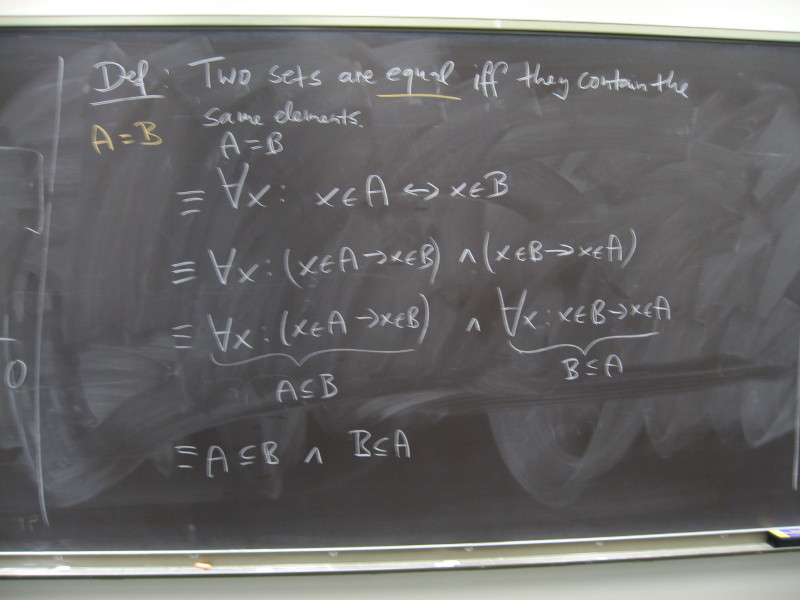 Def: Two sets are equal iff they contain the
same elements.
A=B
A=B
≡ ∀x: x∈A ↔ x∈B
≡ ∀x: (x∈A→x∈B) ∧ (x∈B→x∈A)
≡ ∀x: (x∈A→x∈B) ∧ ∀x: x∈B→x∈A
A⊆B B⊆A
≡ A⊆B ∧ B⊆A